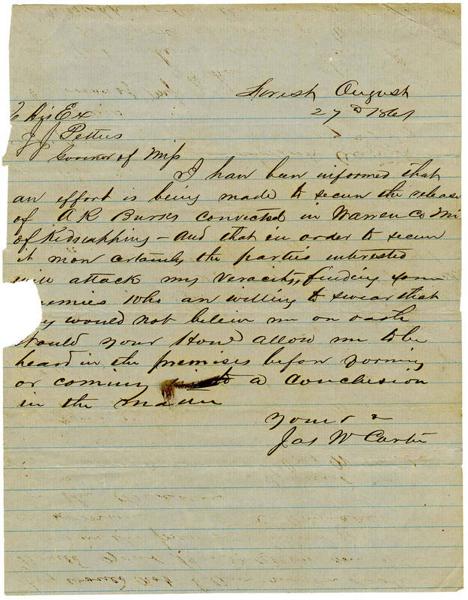 Forest August
27th 1861
To his Ex
J J Pettus
Govnor of Miss
I have been informed that
an effort is being made to secure the release
of A R Burns convicted in Warren Co Mi
of Kidnapping - and that in order to secure
it more certainly the parties interested
will attack my veracity, finding some
enemies who are willing to swear that
they would not believe me on oath
Would your Honr allow me to be
heard in the premises before forming
or coming to a conclusion
in the matter
Yours &
Jas W Carter